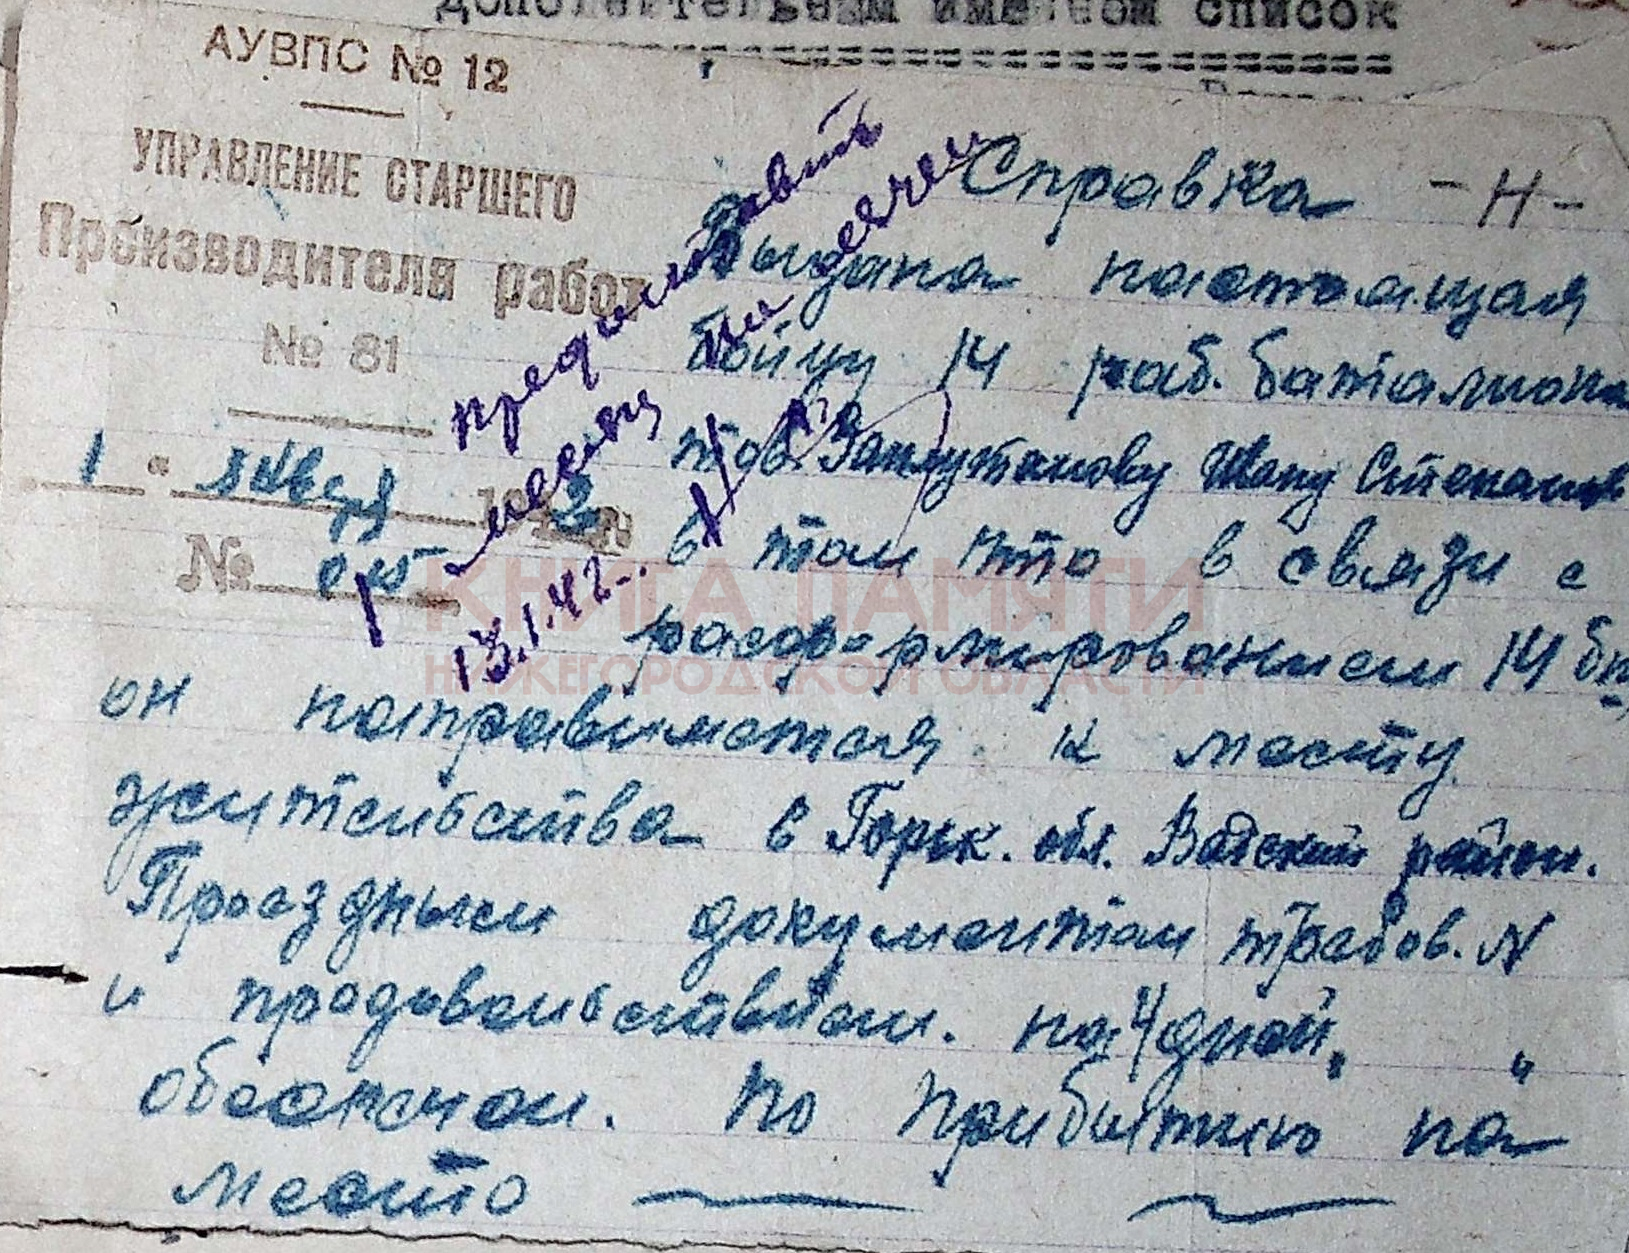 дополнительный именной список
АУВПС № 12
УПРАВЛЕНИЕ СТАРШЕГО
Производителя работ
№ 81
1 " января 1942 г.
№
предоставить
месяц на лечен
13.1.42
Справка -Н-
Выдана настоящая
бойцу 14 раб. баталиона
тов. Ивану Степанов
в том что в связи с
расформированием 14 бп,
он направляется к месту
жительства в Горьк. обл. Вадский район.
Проездным документом требов. N
и продовольствием. на 4 дней, "
обеспечен. По прибытию на
место
КНИГА ПАМЯТИ
НИЖЕГОРОДСКОЙ ОБЛАСТИ